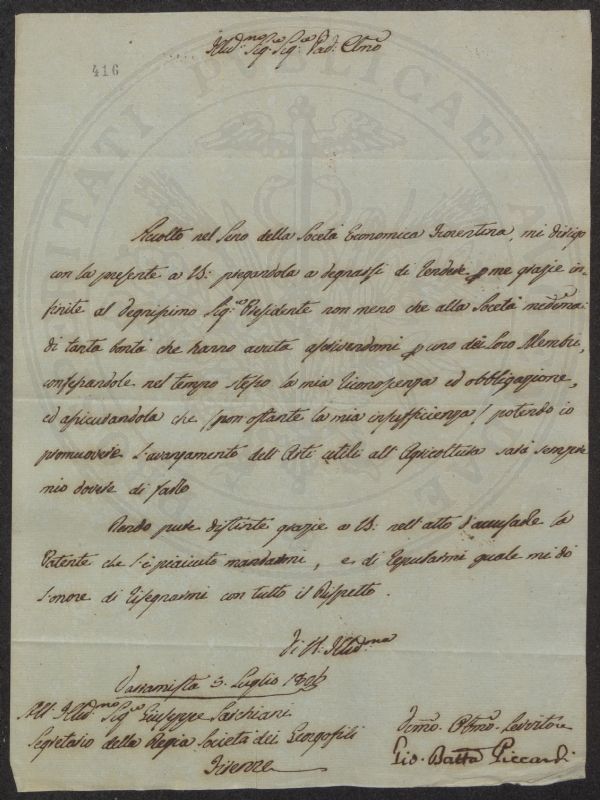 Illmo. Sig. Sig. Pad. Colmo
416
Accolto nel Seno della Società Economica Fiorentina, mi dirigo
con la presente a VS: pregandola a degnarsi di rendere p me grazie in-
finite al degnissimo Sig.re Presidente non meno che alla Società medma:
di tanta bontà che hanno avuta ascrivendomi p uno dei Loro Membri,
confessandole nel tempo stesso la mia riconoscenza ed obbligazione,
ed assicurandola che (non ostante la mia insufficienza) potendo io
promuovere l'avanzamento dell'Arti utili all'Agricoltura sarà sempre
mio dovere di farlo
Rendo pure distinte grazie a VS: nell'atto d'accusarle la
Patente che l'è piaciuto mandarmi, e di reputarmi quale mi do
l'onore di risegnarmi con tutto il Rispetto.
Di V.S. Illma
3. Luglio
All' Illmo Sigre Giuseppe Sarchiani
Segretario della Regia Società dei Georgofili
Firenze
Devmo. Obbmo. Servitore
Gio. Batta Piccardi